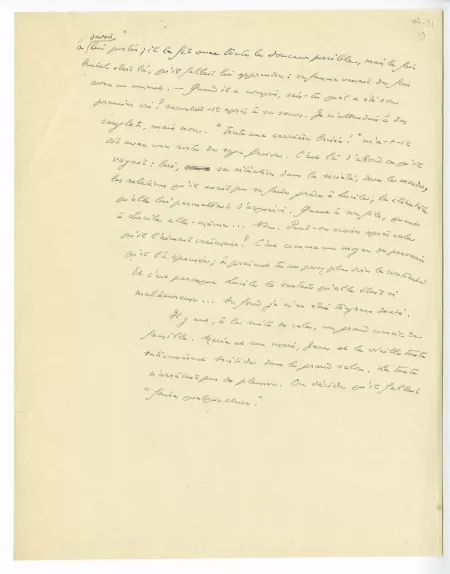 savoir,
à lui parler; il le fit avec toute la douceur possible, mais le fait
brutal était là, qu'il fallait lui apprendre: sa femme venait de fuir
avec un amant. — Quand il a compris, sais-tu quel a été son
premier cri? à sa sœur. Je m'attendais à des
sanglots, mais non. "Toute une carrière brisée!" m'a-t-il
dit avec une sorte de rage froide. C'est là d'abord ce qu'il
voyait: lui, sa situation dans la société, dans le monde,
les relations qu'il avait pu se faire grâce à Lucile, la clientèle
qu'elle lui permettait d'acquérir. Quant à
à Lucile elle-même... Non. Peut-on croire après cela
qu'il l'aimait vraiment? C'est comme un moyen de parvenir
qu'il l'a épousée; à présent tu ne peux plus dire le contraire
Et c'est parce que Lucile le sentait qu'elle était si
malheureuse... Au fond je m'en étais toujours douté.
Il y eut, à la suite de cela, un grand conseil de
famille. Marie et son mari, Jean et la vieille tante
dans le grand salon. La tante
n'arrêtait pas de pleurer. On décida qu'il fallait
"faire quelque chose."